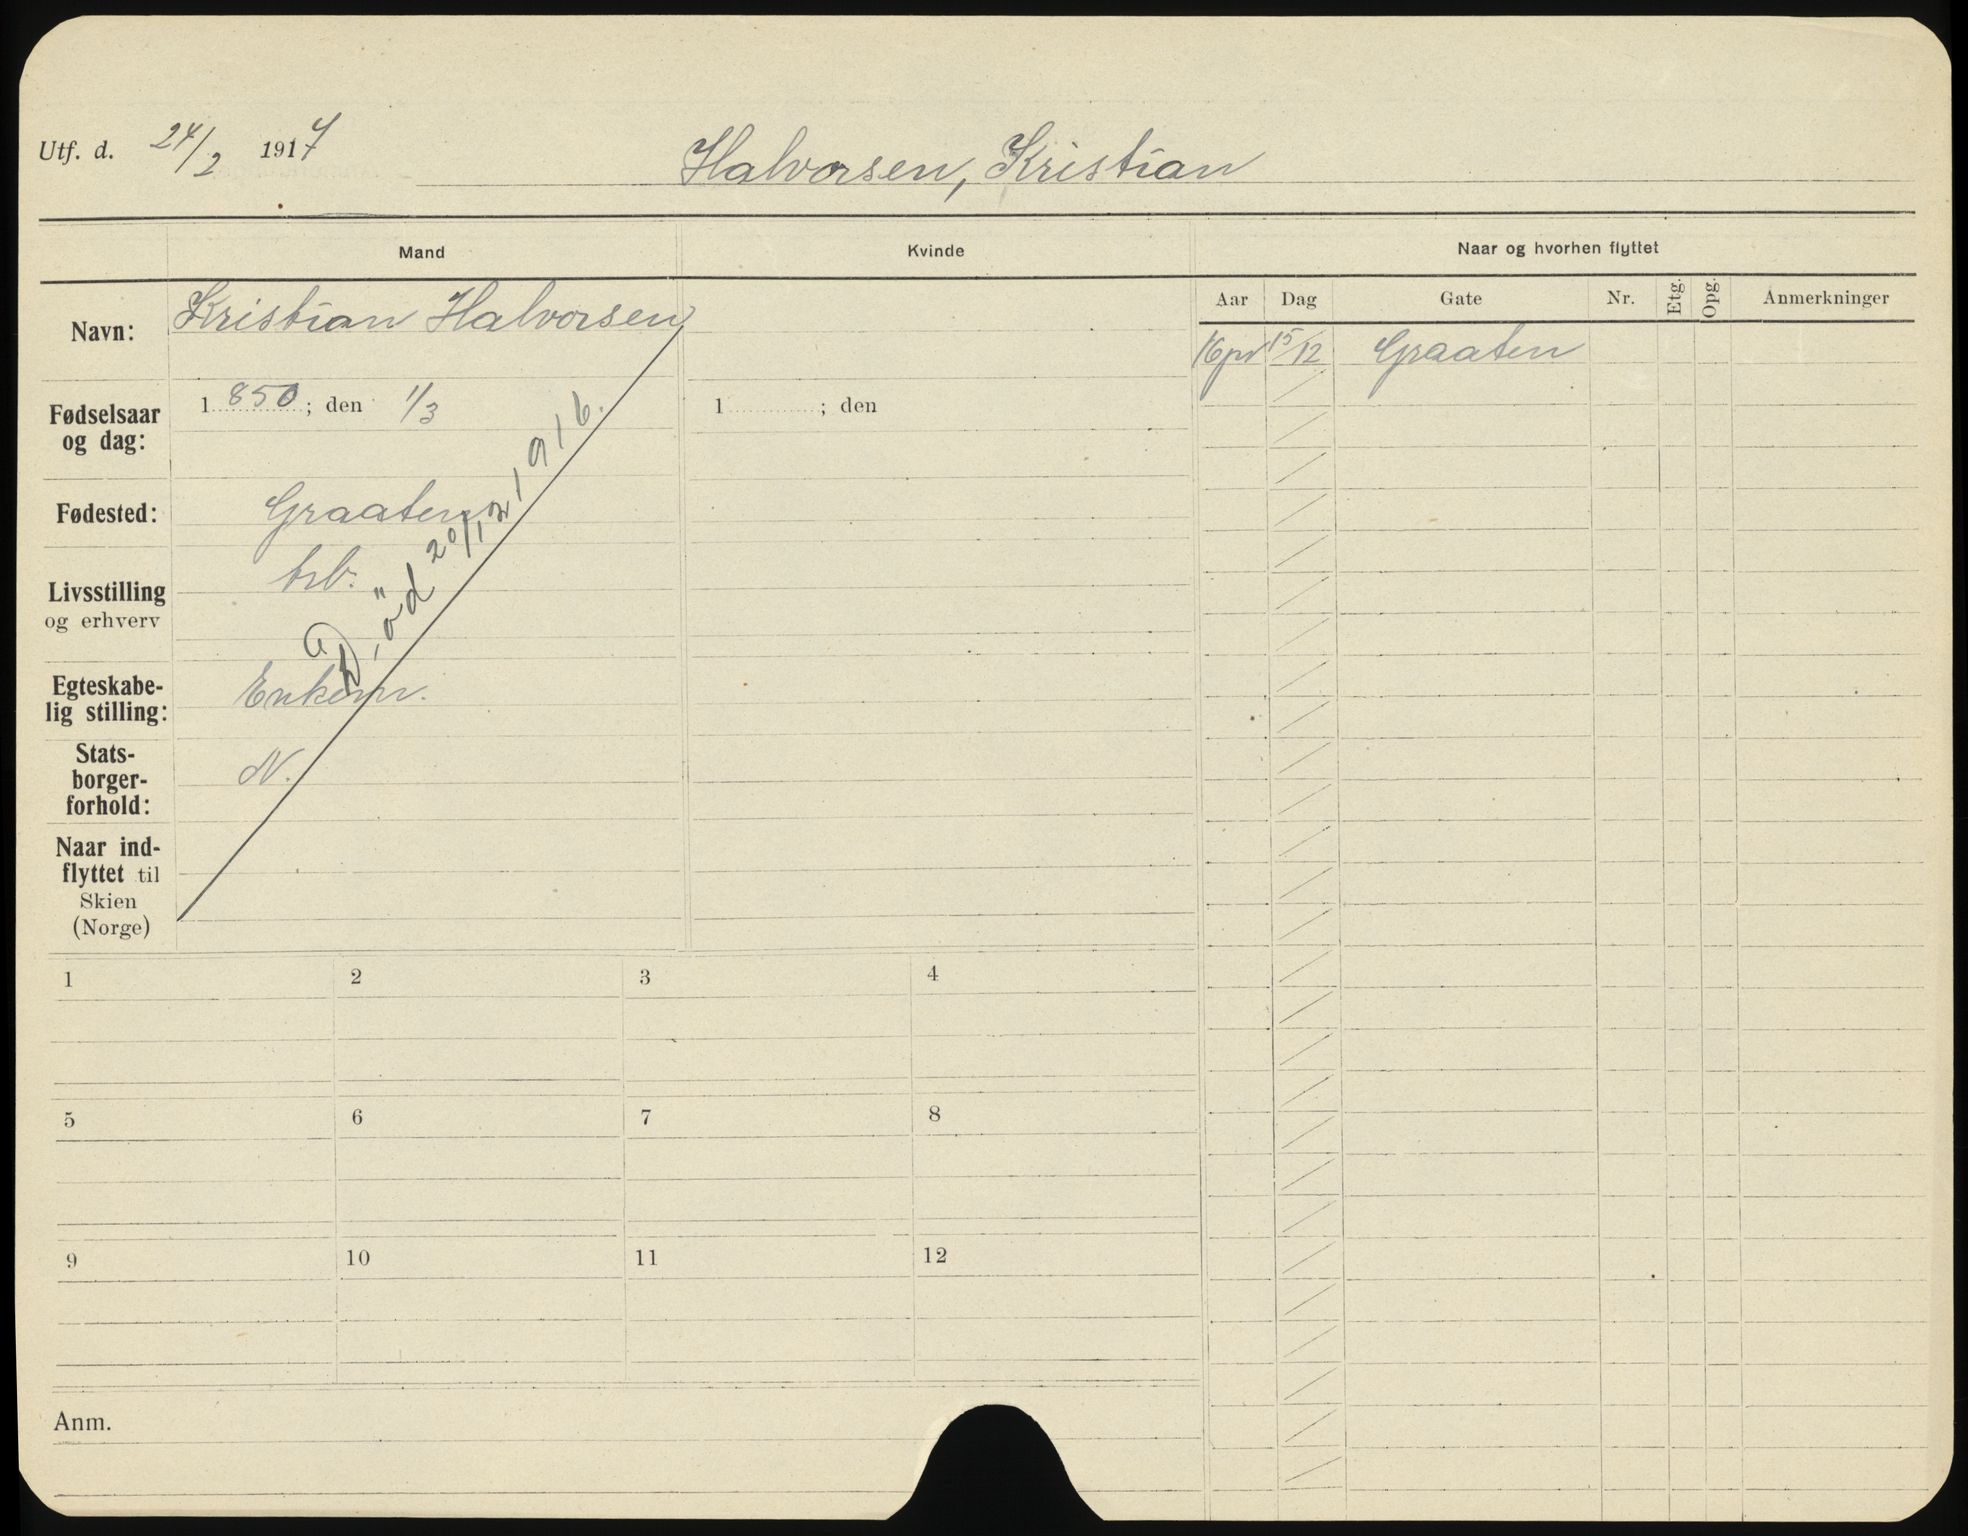 Utf. d. 24/2 1917
Halvorsen, Kristian
Mand
Kvinde
Naar og hvorhen flyttet
Aar Dag Gate Nr. Etg. Opg. Anmerkninger
15/12 Graaten
Navn: Kristian Halvorsen
Fødselsaar og dag: 1850; den 1/3
1 ; den
Fødested: Graaten
Livsstilling og erhverv
arb.
Død 20/12 1916.
Egteskabe-
lig stilling: Enkem.
Stats-
borger-
forhold: N.
Naar ind-
flyttet til
Skien
(Norge)
1 2 3 4
5 6 7 8
9 10 11 12
Anm.